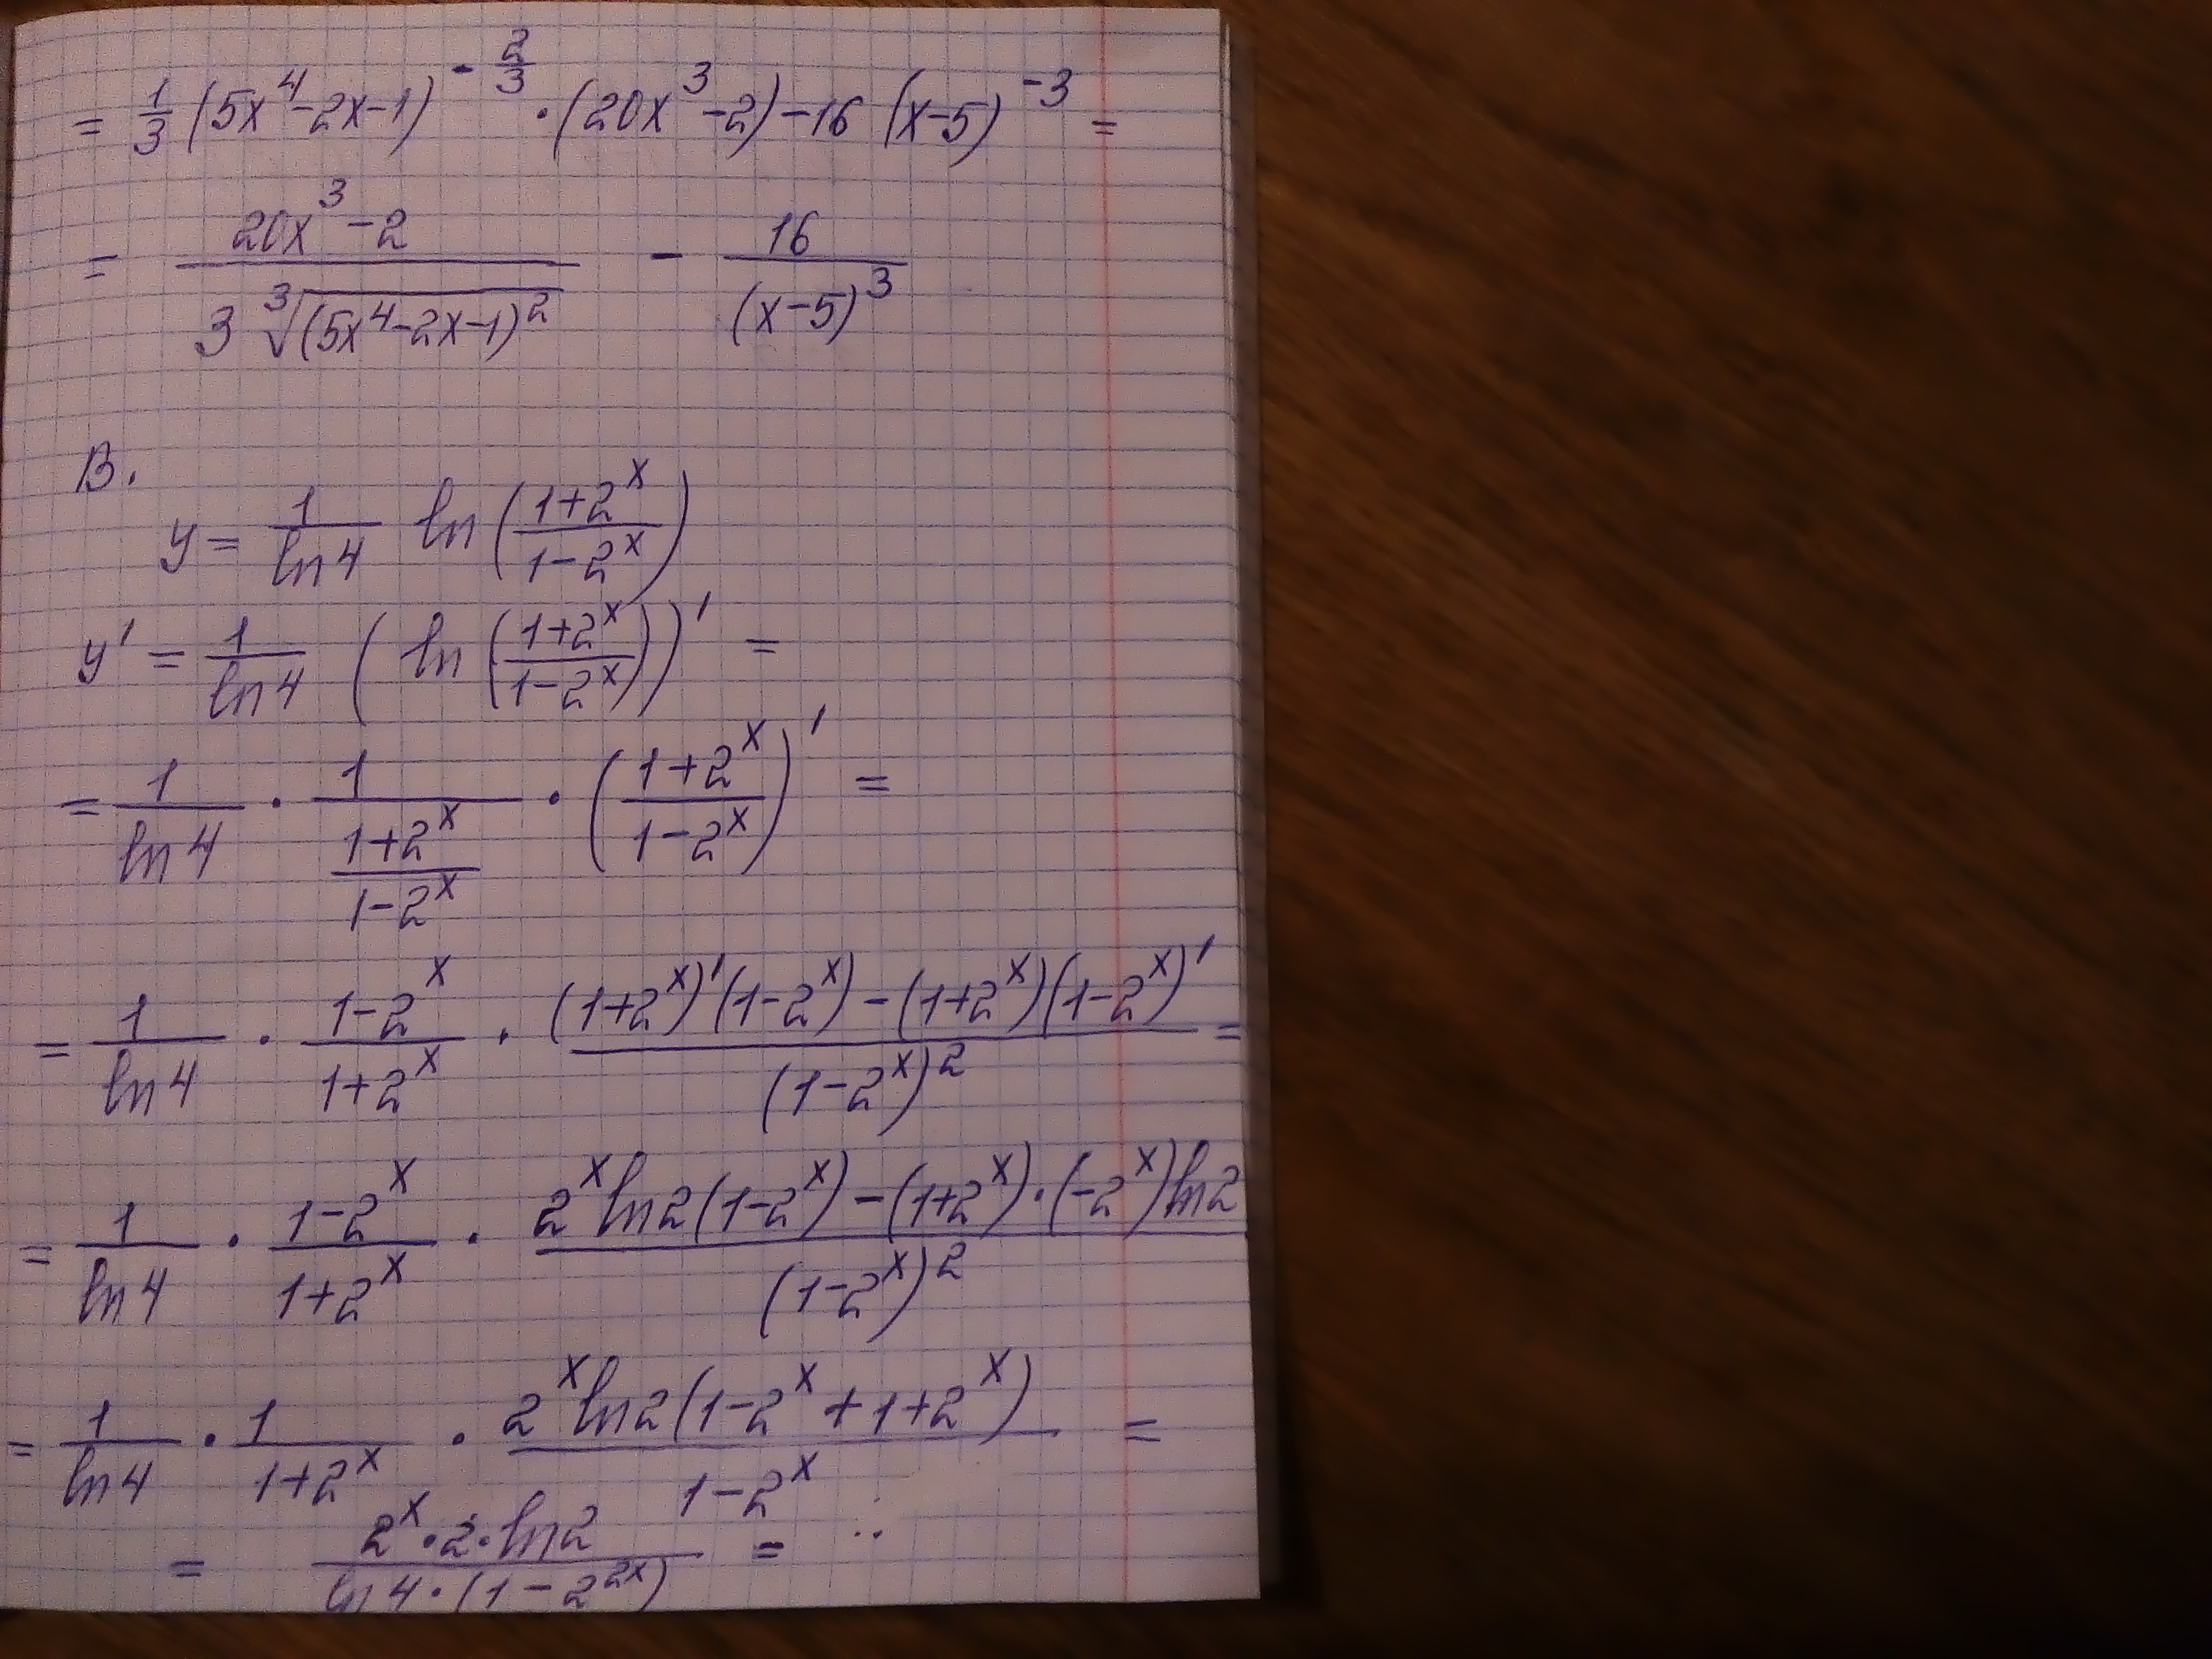 = 1/3 (5x⁴-2x-1)^(-2/3) · (20x³-2) - 16 (x-5)⁻³ =
= (20x³-2)/(3 ∛((5x⁴-2x-1)²)) - 16/(x-5)³
В.
y = 1/ln4 ln((1+2ˣ)/(1-2ˣ))
y' = 1/ln4 (ln((1+2ˣ)/(1-2ˣ)))' =
= 1/ln4 · 1/((1+2ˣ)/(1-2ˣ)) · ((1+2ˣ)/(1-2ˣ))' =
= 1/ln4 · (1-2ˣ)/(1+2ˣ) · ((1+2ˣ)'(1-2ˣ)-(1+2ˣ)(1-2ˣ)')/(1-2ˣ)² =
= 1/ln4 · (1-2ˣ)/(1+2ˣ) · (2ˣ ln2(1-2ˣ)-(1+2ˣ)·(-2ˣ)ln2)/(1-2ˣ)²
= 1/ln4 · 1/(1+2ˣ) · (2ˣ ln2(1-2ˣ+1+2ˣ))/(1-2ˣ) =
= (2ˣ·2·ln2)/(ln4·(1-2²ˣ)) = ..